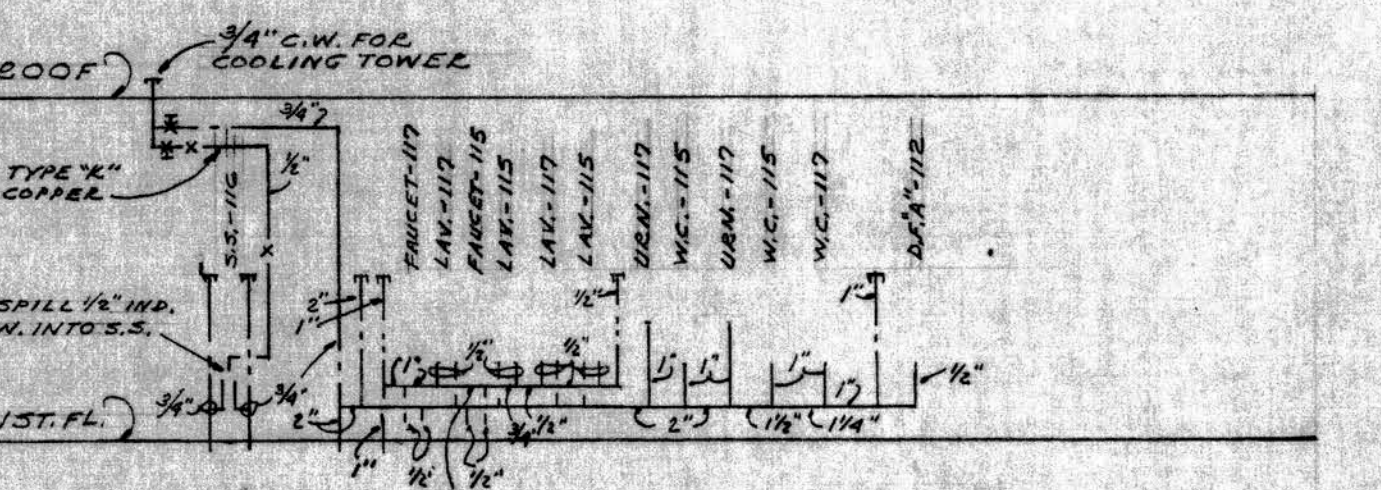 3/4" C.W. FOR
COOLING TOWER
ROOF
3/4"
TYPE "K"
COPPER
1/2"
S.S.-116
FAUCET-117
LAV.-117
FAUCET-115
LAV.-115
LAV.-117
LAV.-115
URN.-117
W.C.-115
URN.-117
W.C.-115
W.C.-117
D.F."A"-112
SPILL 1/2" IND.
W. INTO S.S.
2"
1"
1/2"
1"
1"
1/2"
1/2"
1"
1"
1"
1"
1/2"
3/4"
3/4"
1ST. FL.
2"
3/4"
1/2"
2"
1 1/2"
1 1/4"
1"
1/2"
1/2"